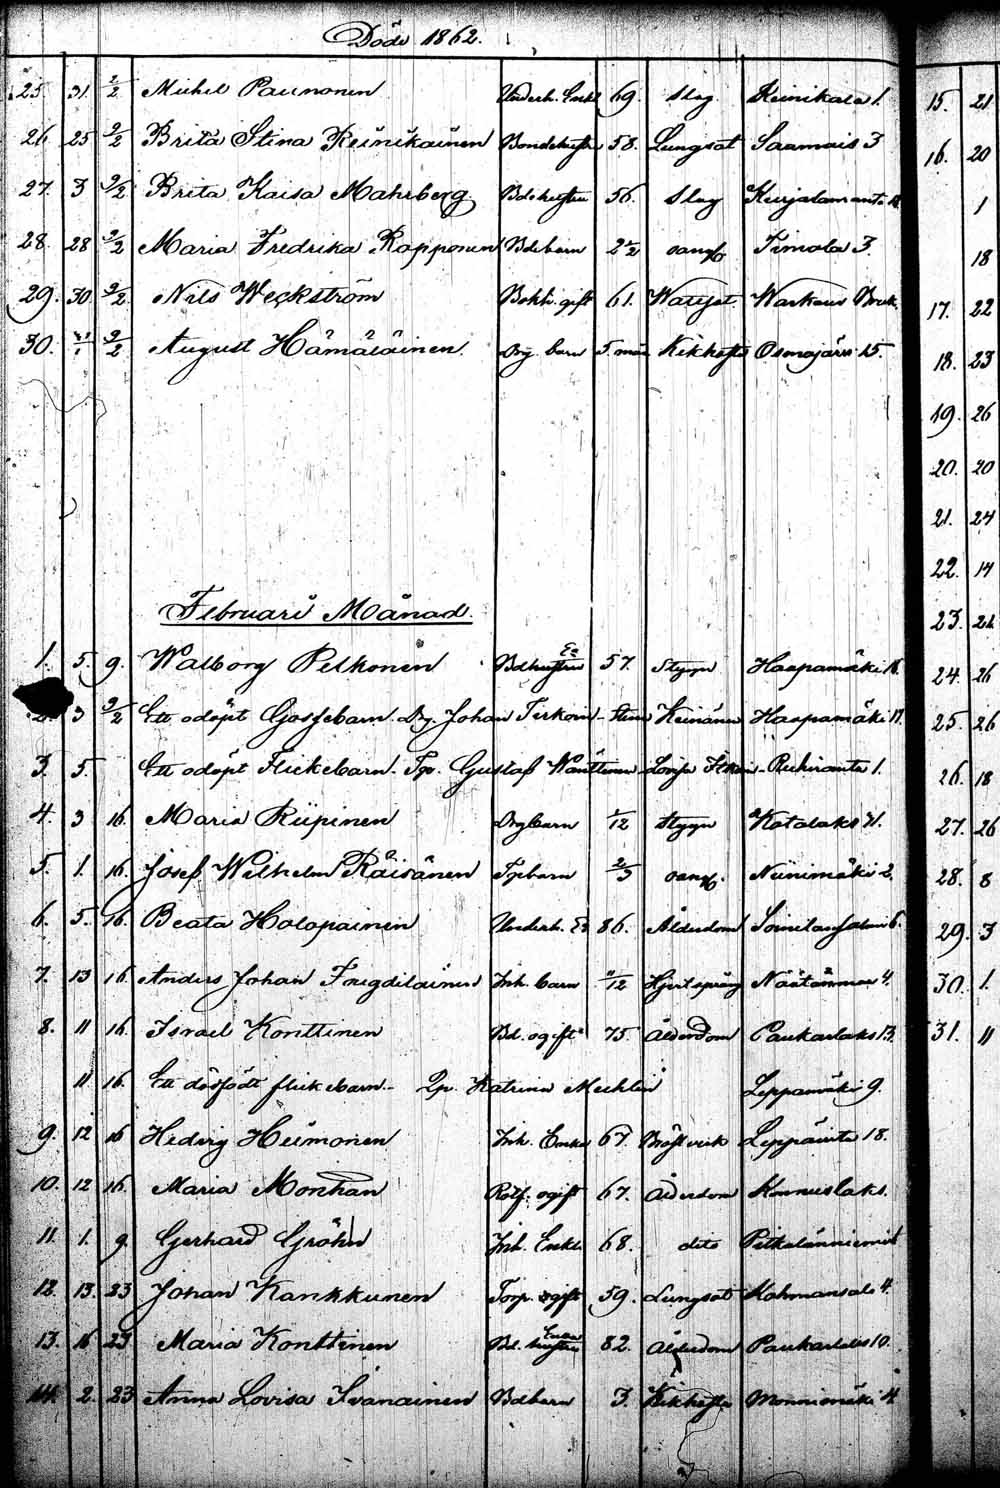 Döde 1862.
25. 31. 2/2 Michel Paunonen Underh. Enkl 69. slag Reinikala 1.
26 25 9/2 Brita Stina Reinikainen Bondehustru 58. Lungsot Saamais 3
27. 3 9/2 Brita Kaisa Mahrberg Bdehustru 56. slag Kurjalanranta
28. 28 9/2 Maria Fredrika Kopponen Bdebarn 2 1/2 oangf. Timola 3.
29. 30 9/2 Nils Weckström Bokh. gift 61. Wattsot Warkaus Bruk
30. 9/2 August Hämäläinen Drg. barn 5 mån Kikhosta Osmajärvi 15.
Februari Månad.
1. 5. 9. Walborg Pelkonen Bdhustru Ea 57. Styng Haapamäki 16.
3 9/2 Ett odöpt Gossebarn. Drg. Johan Heinänen Haapamäki 17.
3. 5. Ett odöpt Flickebarn. Tp. Gustaf Wänttinen Lovisa Ruhiranta 1.
4. 3 16. Maria Riipinen Drgbarn 1/12 Styng Kotalaks 21.
5. 1. 16. Josef Wilhelm Räisänen Tpbarn 2/3 oangf. Niinimäki 2.
6. 5. 16. Beata Holopainen Underh. Ea 86. Ålderdom Soinilansalmi 6.
7. 13 16. Anders Johan Frigdilainen Inh. barn 11/12 Hjertspräng Näätänmaa 4.
8. 11 16. Israel Konttinen Bd. ogift 75. Ålderdom Paukarlaks 13.
11 16. Ett dödfödt flickebarn. Katrina Mechlin Leppämäki 9.
9. 12 16 Hedvig Heimonen Inh. Enka 67. Bröstverk Leppävirta 18.
10. 12 16. Maria Monthan Rotf. ogift 67. Ålderdom Konnuslaks.
11. 1. 9. Gerhard Gröhn Inh. Enkl. 68. dito Pitkälänniemi 1
12. 13. 23 Johan Kankkunen Torp. ogift 59. Lungsot Mohmansalo 4.
13. 16 23 Maria Konttinen Bd. hustru Enka 82. Ålderdom Paukarlaks 10.
14. 2. 23 Anna Lovisa Ivanainen Bdbarn 3. Kikhosta Monnimäki 4.
15. 21
16. 20
1
18
17. 22
18. 23
19. 26
20. 20
21. 24
22. 14
23. 21
24. 26
25. 26
26. 18
27. 26
28. 8
29. 3
30. 1.
31. 11